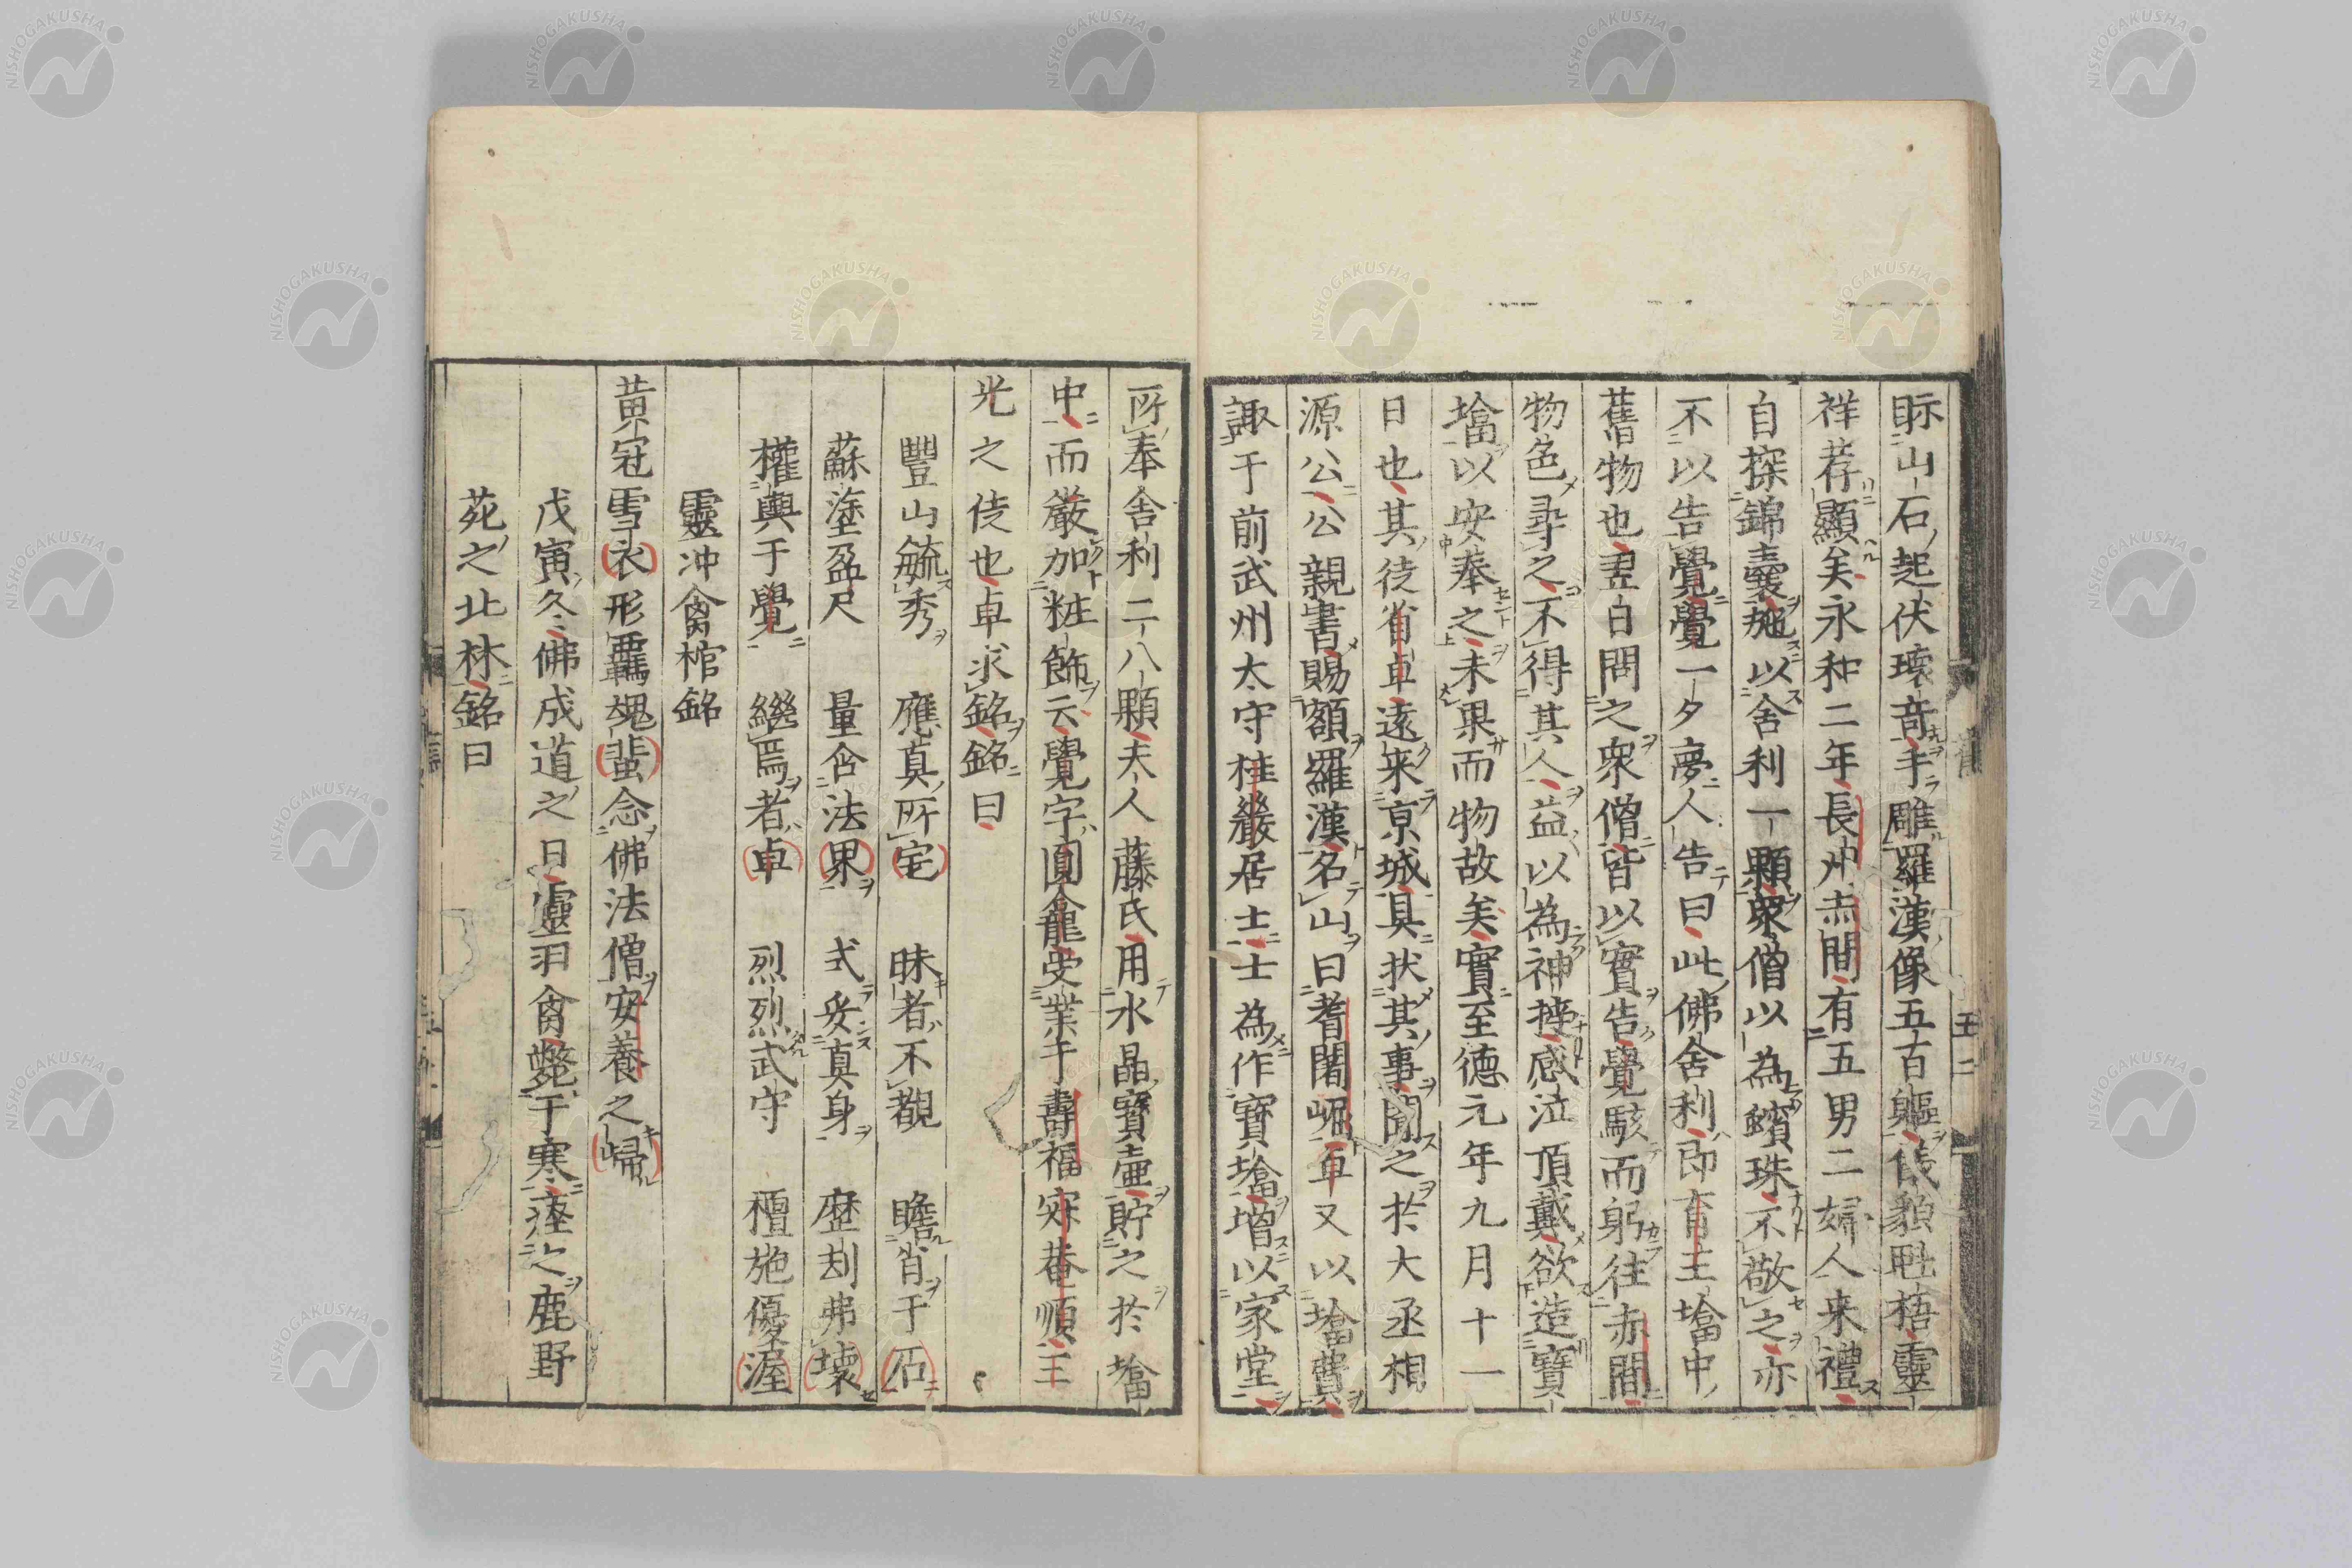 眎山石起伏壞竒手雕羅漢像五百軀儀貌魁梧靈
祥荐顯矣永和二年長州赤間有五男二婦人来禮
自探錦囊施以舍利一顆衆僧以為蠙珠不敬之亦
不以告覺覺一夕夢人告曰此佛舍利即育王墖中
舊物也翌白問之衆僧皆以實告覺駭而躬往赤間
物色尋之不得其人益以為神捧感泣頂戴欲造寶
墖以安奉之未果而物故矣實至德元年九月十一
日也其徒省卓遠来京城具狀其事聞之於大丞相
源公公親書賜額羅漢名山曰耆闍崛卓又以墖費
諏于前武州太守桂巖居士士為作寶墖增以家堂
所奉舍利二八顆夫人藤氏用水晶寶壷貯之於墖
中而嚴加粧飾云覺字圓龕受業于壽福寂菴順主
光之徒也卓求銘銘曰
豐山毓秀 應真所宅 昧者不覩 瞻肖于石
蘇塗盈尺 量含法果 式妥真身 歷刧弗壞
權輿于覺 繼焉者卓 烈烈武守 檀施優渥
靈冲禽棺銘
黄冠雪衣形羈魂蜚念佛法僧安養之歸
戊寅冬佛成道之日靈羽禽斃于寒瘞之鹿野
苑之北林銘曰
五二
NISHOGAKUSHA